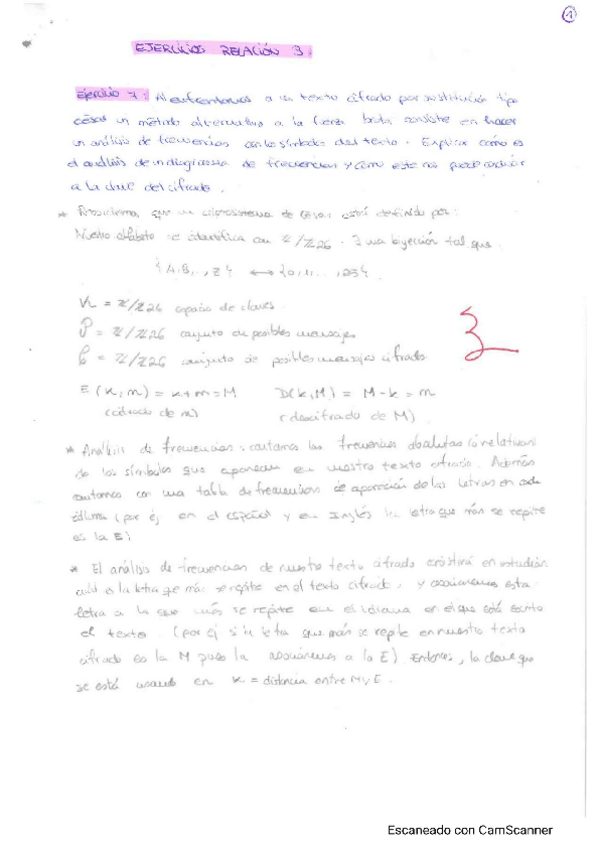 1
EJERCICIOS RELACIÓN 3.
Ejercicio 7: Al enfrentarnos a un texto cifrado por sustitución tipo
césar un método alternativo a la fuerza bruta consiste en hacer
un análisis de frecuencias con los símbolos del texto. Explicar cómo es
el análisis de de frecuencias y cómo este nos puede conducir
a la clave del cifrado.
* Recordemos que un criptosistema de César está definido por:
Nuestro alfabeto se identifica con Z/Z26. ∃ una biyección tal que
{A,B,..,Z} ↔ {0,1,...,25}
K = Z/Z26 espacio de claves
P = Z/Z26 conjunto de posibles mensajes
C = Z/Z26 conjunto de posibles mensajes cifrados
3
E(k,m) = k+m = M D(k,M) = M-k = m
(cifrado de m) (descifrado de M).
* Análisis de frecuencias: contamos las frecuencias absolutas (o relativas)
de los símbolos que aparecen en nuestro texto cifrado. Además
contamos con una tabla de frecuencias de aparición de las letras en cada
idioma (por ej en el español y en Inglés la letra que más se repite
es la E)
* El análisis de frecuencias de nuestro texto cifrado consistirá en estudiar
cuál es la letra que más se repite en el texto cifrado, y asociaremos esta
letra a la que más se repite en el idioma en el que está escrito
el texto. (por ej si la letra que más se repite en nuestro texto
cifrado es la M pues la asociaremos a la E) Entonces, la clave que
se está usando en K = distancia entre M y E.
Escaneado con CamScanner